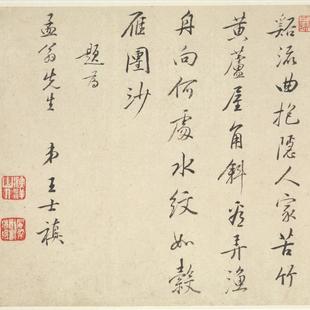 谿流曲抱隱人家苦竹
黃蘆屋角斜弄漁
舟向何處水紋如縠
雁團沙
題為
孟翁先生 弟王士禛